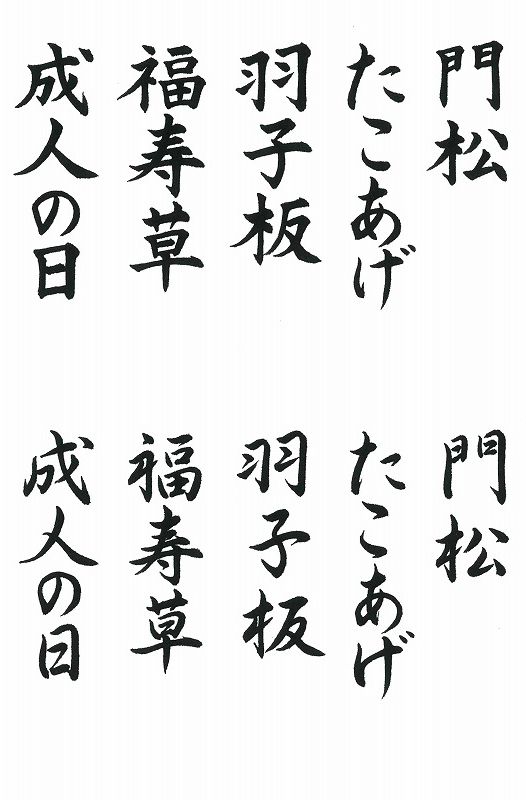 門松
たこあげ
羽子板
福寿草
成人の日
門松
たこあげ
羽子板
福寿草
成人の日